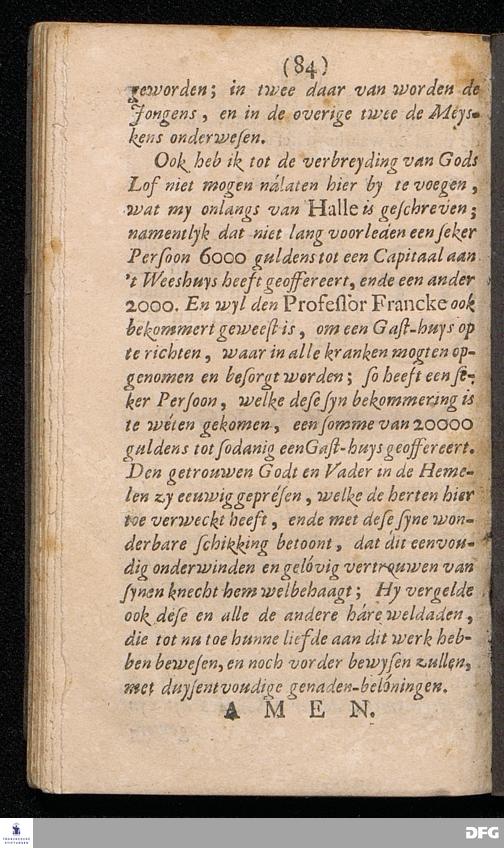 (84)
geworden; in twee daar van worden de
Jongens, en in de overige twee de Meys-
kens onderweſen.
Ook heb ik tot de verbreyding van Gods
Lof niet mogen nálaten hier by te voegen,
wat my onlangs van Halle is geſchreven;
namentlyk dat niet lang voorleden een ſeker
Perſoon 6000 guldens tot een Capitaal aan
't Weeshuys heeft geoffereert, ende een ander
2000. En wyl den Profeſſor Francke ook
bekommert geweeſt is, om een Gaſt-huys op
te richten, waar in alle kranken mogten op-
genomen en beſorgt worden; ſo heeft een ſe-
ker Perſoon, welke deſe ſyn bekommering is
te wéten gekomen, een ſomme van 20000
guldens tot ſodanig een Gaſt-huys geoffereert.
Den getrouwen Godt en Vader in de Heme-
len zy eeuwig gepréſen, welke de herten hier
toe verweckt heeft, ende met deſe ſyne won-
derbare ſchikking betoont, dat dit eenvou-
dig onderwinden en gelóvig vertrouwen van
ſynen knecht hem welbehaagt; Hy vergelde
ook deſe en alle de andere háre weldaden,
die tot nu toe hunne liefde aan dit werk heb-
ben beweſen, en noch vorder bewyſen zullen,
met duyſentvoudige genaden-belóningen.
AMEN.
FRANCKESCHE
STIFTUNGEN
DFG